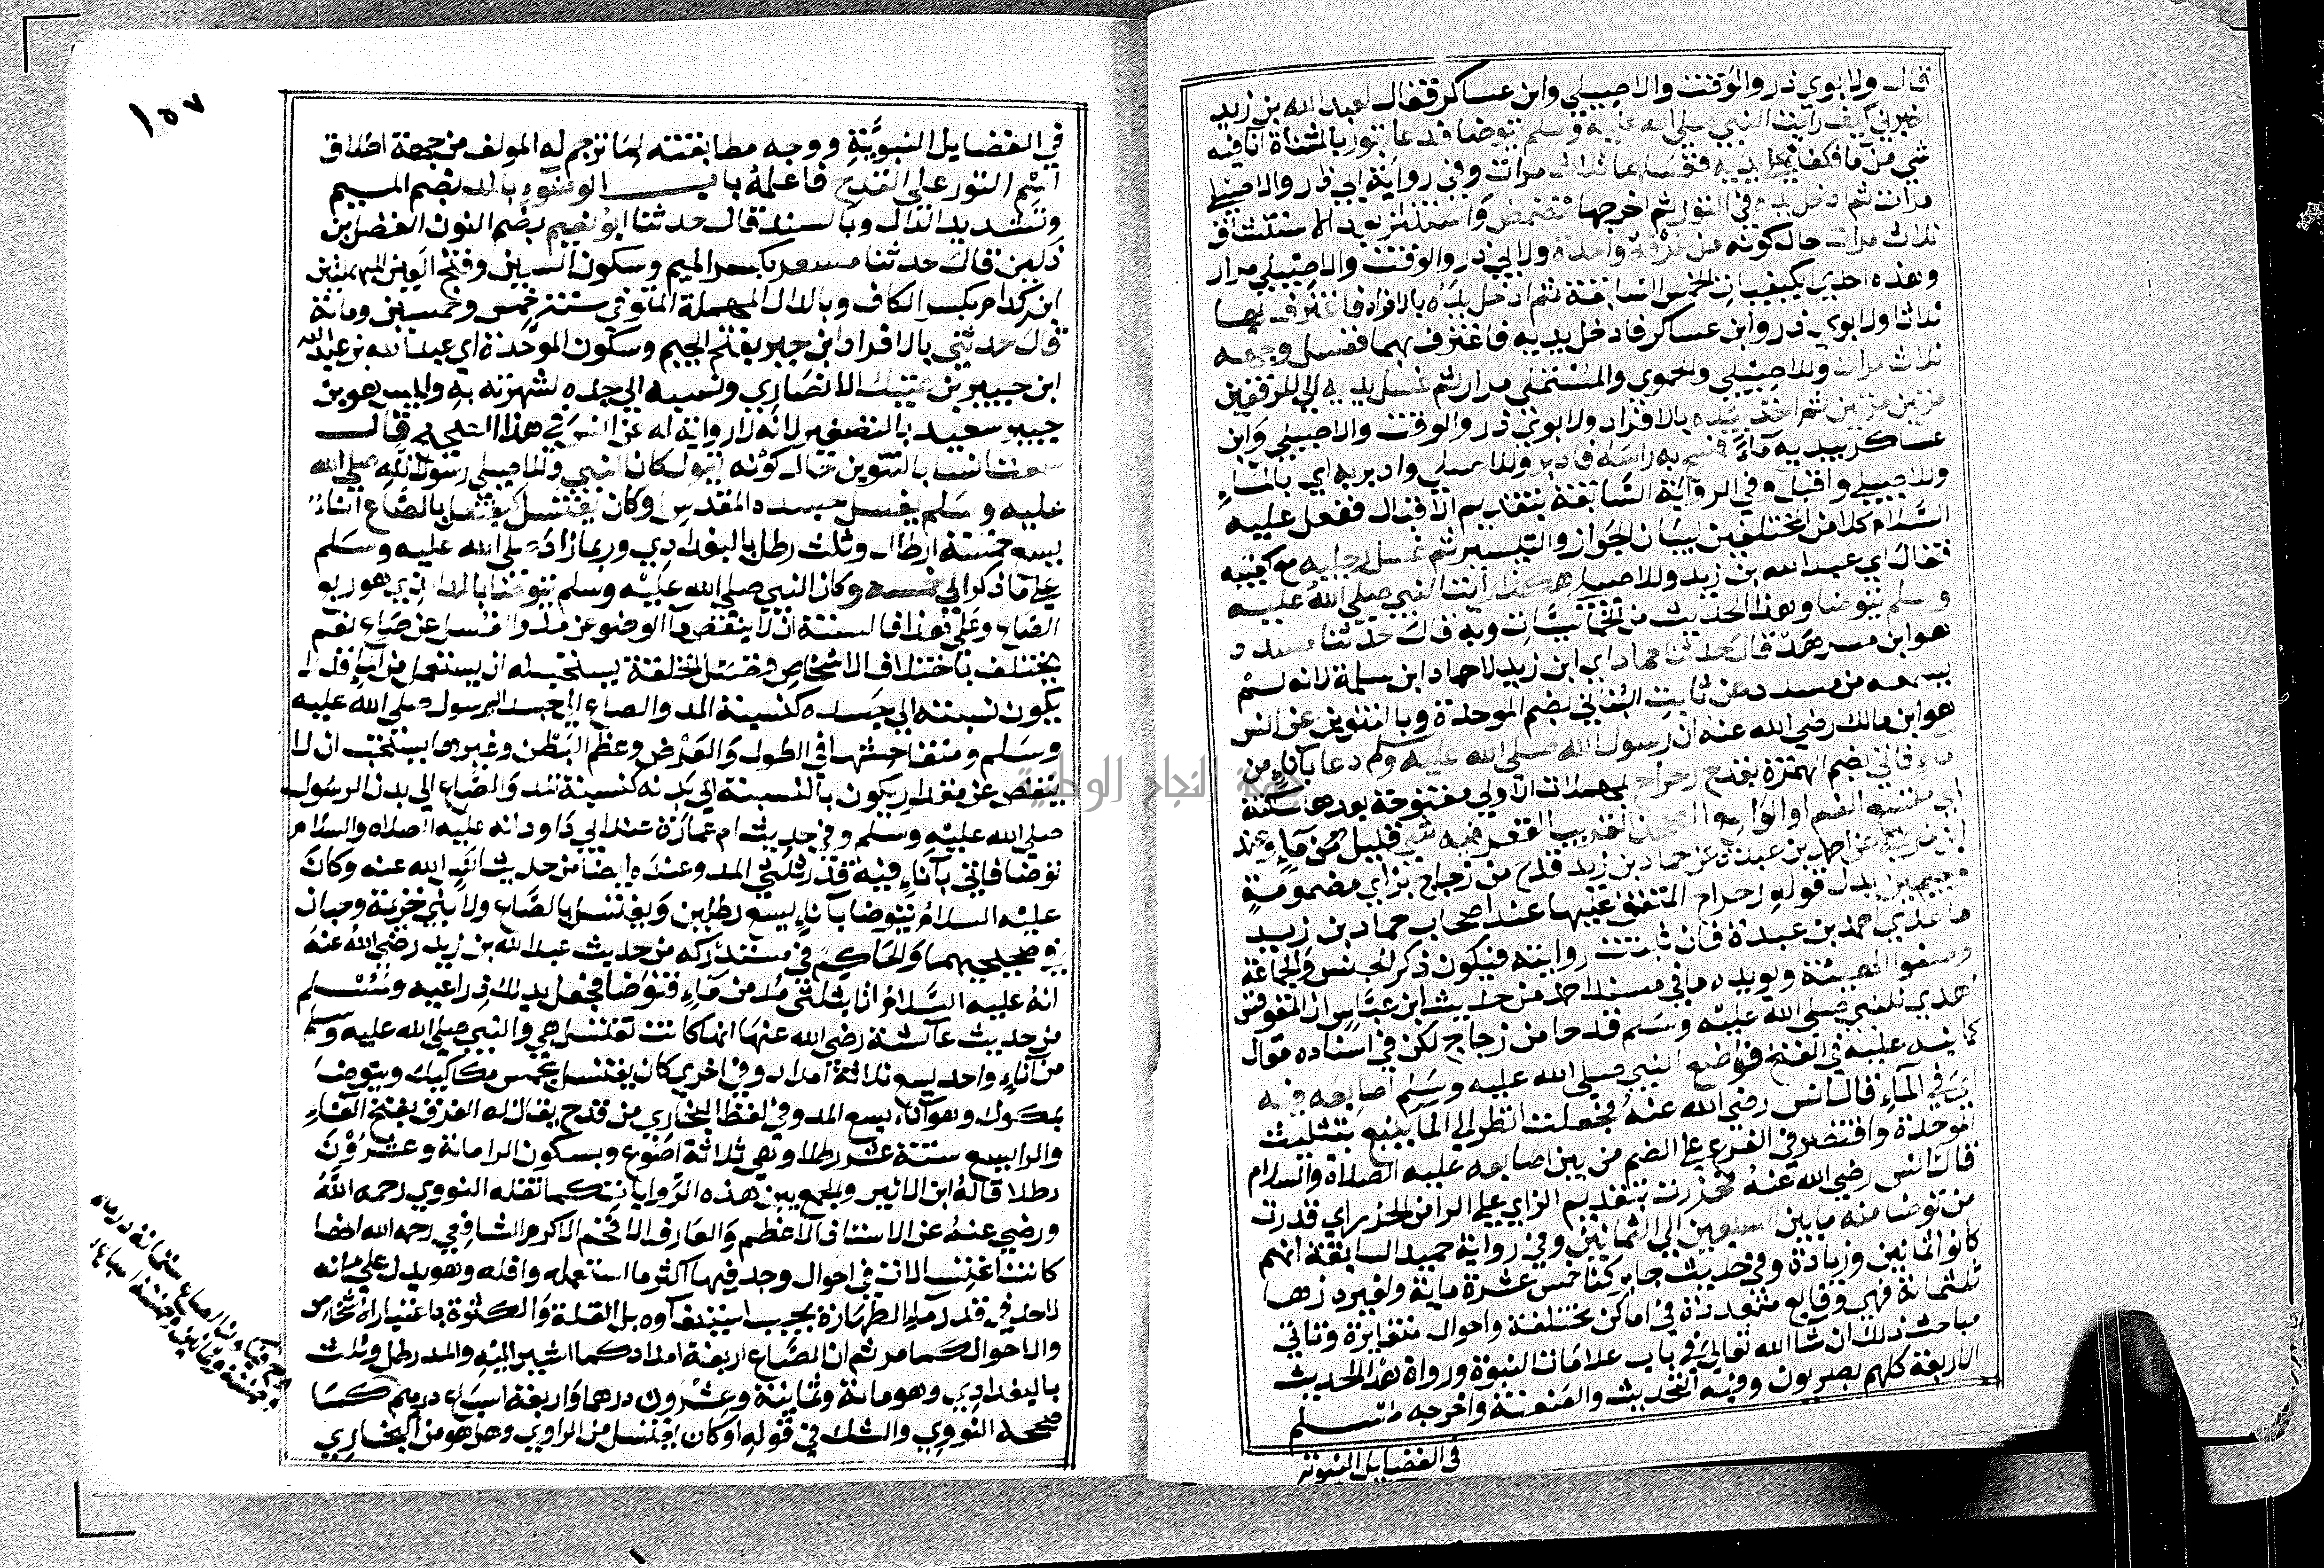 قال ولابوي ذر والوقت والاصيلي وابن عساكر فقال لعبد الله بن زيد
اخبرني كيف رايت النبي صلى الله عليه وسلم يتوضا فدعا بتور بالمثناة انا فيه
شي من ما فكفا على يديه فغسلهما ثلاث مرات وفي رواية ابي ذر والاصيلي
مرات ثم ادخل يده في التور ثم اخرجها فتمضمض واستنثر بعد الاستنشاق
ثلاث مرات حال كونه من غرفة واحدة ولابي ذر والوقت والاصيلي مرار
وهذه احدى الكيفيات الخمس السابقة ثم ادخل يده بالافراد فاغترف بها
ثلاثا ولابوي ذر وابن عساكر فادخل يديه فاغترف بهما فغسل وجهه
ثلاث مرات وللاصيلي والحموي والمستملي مرار ثم غسل يديه الى المرفقين
مرتين مرتين ثم اخذ بيده بالافراد ولابوي ذر والوقت والاصيلي وابن
عساكر بيديه ماء فمسح به راسه فادبر وللاصيلي وادبر به اي بالماء
وللاصيلي واقبل وفي الرواية السابقة بتقديم الاقبال ففعل عليه
السلام كلا من المختلفين لبيان الجواز والتيسير ثم غسل رجليه مع كعبيه
فقال اي عبد الله بن زيد وللاصيلي هكذا رايت النبي صلى الله عليه
وسلم يتوضا وهذا الحديث من الخماسيات وبه قال حدثنا مسدد
هو ابن مسرهد قال حدثنا حماد اي ابن زيد لا حماد ابن سلمة لانه لم
يسمعه من مسدد عن ثابت البناني بضم الموحدة وبالتنوين عن انس
هو ابن مالك رضي الله عنه ان رسول الله صلى الله عليه وسلم دعا باناء من
ماء فاتي بضم الهمزة بقدح رحراح بمهملات الاولى مفتوحة بعدها ساكنة
اي متسع الفم او الواسع الصحن القريب القعر فيه شي قليل من ماء وعند
ابن خزيمة عن احمد بن عبدة عن حماد بن زيد قدح من زجاج بزاي مضمومة
وجيمين بدل قوله رحراح المتفق عليها عند اصحاب حماد بن زيد
ما عدي احمد بن عبدة فان ثبتت روايته فيكون ذكر الجنس والجماعة
وصفوا الهيئة ويويده ما في مسند احمد من حديث ابن عباس ان المقوقس
اهدي للنبي صلى الله عليه وسلم قدحا من زجاج لكن في اسناده مقال
كما نبه عليه في الفتح فوضع النبي صلى الله عليه وسلم اصابعه فيه
اي في الماء قال انس رضي الله عنه فجعلت انظر الى الما ينبع بتثليث
الموحدة واقتصر في الفرع على الضم من بين اصابعه عليه الصلاة والسلام
قال انس رضي الله عنه فحزرت بتقديم الزاي على الرا من الحزر اي قدرت
من توضا منه ما بين السبعين الى الثمانين وفي رواية حميد السابقة انهم
كانوا ثمانين وزيادة وفي حديث جابر كنا خمس عشرة ماية ولغيره زها
ثلثماية فهي وقايع متعددة في اماكن مختلفة واحوال متغايرة وتاتي
مباحث ذلك ان شا الله تعالى في باب علامات النبوة ورواة هذا الحديث
الاربعة كلهم بصريون وفيه التحديث والعنعنة واخرجه مسلم
في الفضايل النبوية
١٥٧
في الفضايل النبوية ووجه مطابقته لما ترجم له المولف من جهة اطلاق
اسم التور على القدح فاعلم باب الوضوء بالمد بضم الميم
وتشديد الدال وبالسند قال حدثنا ابو نعيم بضم النون الفضل بن
دكين قال حدثنا مسعر بكسر الميم وسكون السين وفتح العين المهملتين
ابن كدام بكسر الكاف وبالدال المهملة المتوفى سنة خمس وخمسين ومائة
قال حدثني بالافراد ابن جبر بفتح الجيم وسكون الموحدة اي عبد الله بن عبد الله
ابن جبير بن عتيك الانصاري ونسبه الى جده لشهرته به وليس هو بن
جبير سعيد بالتصغير لانه لا رواية له عن انس في هذا الصحيح قال
سمعت انسا بالتنوين حال كونه يقول كان النبي وللاصيلي رسول الله صلى الله
عليه وسلم يغسل جسده المقدس او كان يغتسل كيفتعل بالصاع اناء
يسع خمسة ارطال وثلث رطل بالبغدادي وربما زاد صلى الله عليه وسلم
على ما ذكر الى خمسة وكان النبي صلى الله عليه وسلم يتوضا بالمد الذي هو ربع
الصاع وعلى هذا فالسنة ان لا ينقص ماء الوضوء عن مد والغسل عن صاع نعم
يختلف باختلاف الاشخاص فضئيل الخلقة يستحب له ان يستعمل من الماء قدرا
يكون نسبته الى جسده كنسبة المد والصاع الى جسد الرسول صلى الله عليه
وسلم ومتفاحشها في الطول والعرض وعظم البطن وغيرها يستحب ان لا
ينقص عن مقدار يكون بالنسبة الى بدنه كنسبة المد والصاع الى بدن الرسول
صلى الله عليه وسلم وفي حديث ام عمارة عند ابي داود انه عليه الصلاه والسلام
توضا فاتي باناء فيه قدر ثلثي المد وعنده ايضا من حديث انس رضي الله عنه وكان
عليه السلام يتوضا باناء يسع رطلين ويغتسل بالصاع ولابني خزيمة وحبان
في صحيحيهما والحاكم في مستدركه من حديث عبد الله بن زيد رضي الله عنه
انه عليه السلام اتا بثلثي مد من ماء فتوضا فجعل يدلك ذراعيه ولمسلم
من حديث عائشة رضي الله عنها انها كانت تغتسل هي والنبي صلى الله عليه وسلم
من اناء واحد يسع ثلاثة امداد وفي اخرى كان يغتسل بخمس مكاكيك ويتوضا
بمكوك وهو اناء يسع المد وفي لفظ البخاري من قدح يقال له الفرق بفتح الفاء
والرا يسع ستة عشر رطلا وهي ثلاثة اصوع وبسكون الرا مائة وعشرون
رطلا قاله ابن الاثير والجمع بين هذه الروايات كما نقله النووي رحمه الله
ورضي عنه عن الاستاذ الاعظم والعارف الافخم الاكرم الشافعي رحمه الله انها
كانت اغتسالات في احوال وجد فيها اكثر ما استعمله واقله وهو يدل على انه
لا حد في قدر ماء الطهارة يجب استيفاوه بل القلة والكثرة باعتبار الاشخاص
والاحوال كما مر ثم ان الصاع اربعة امداد كما اشير اليه والمد رطل وثلث
بالبغدادي وهو مائة وثمانية وعشرون درهما واربعة اسباع درهم كما
صححه النووي والشك في قوله او كان يغتسل من الراوي وهل هو من البخاري
جامعة النجاح الوطنية